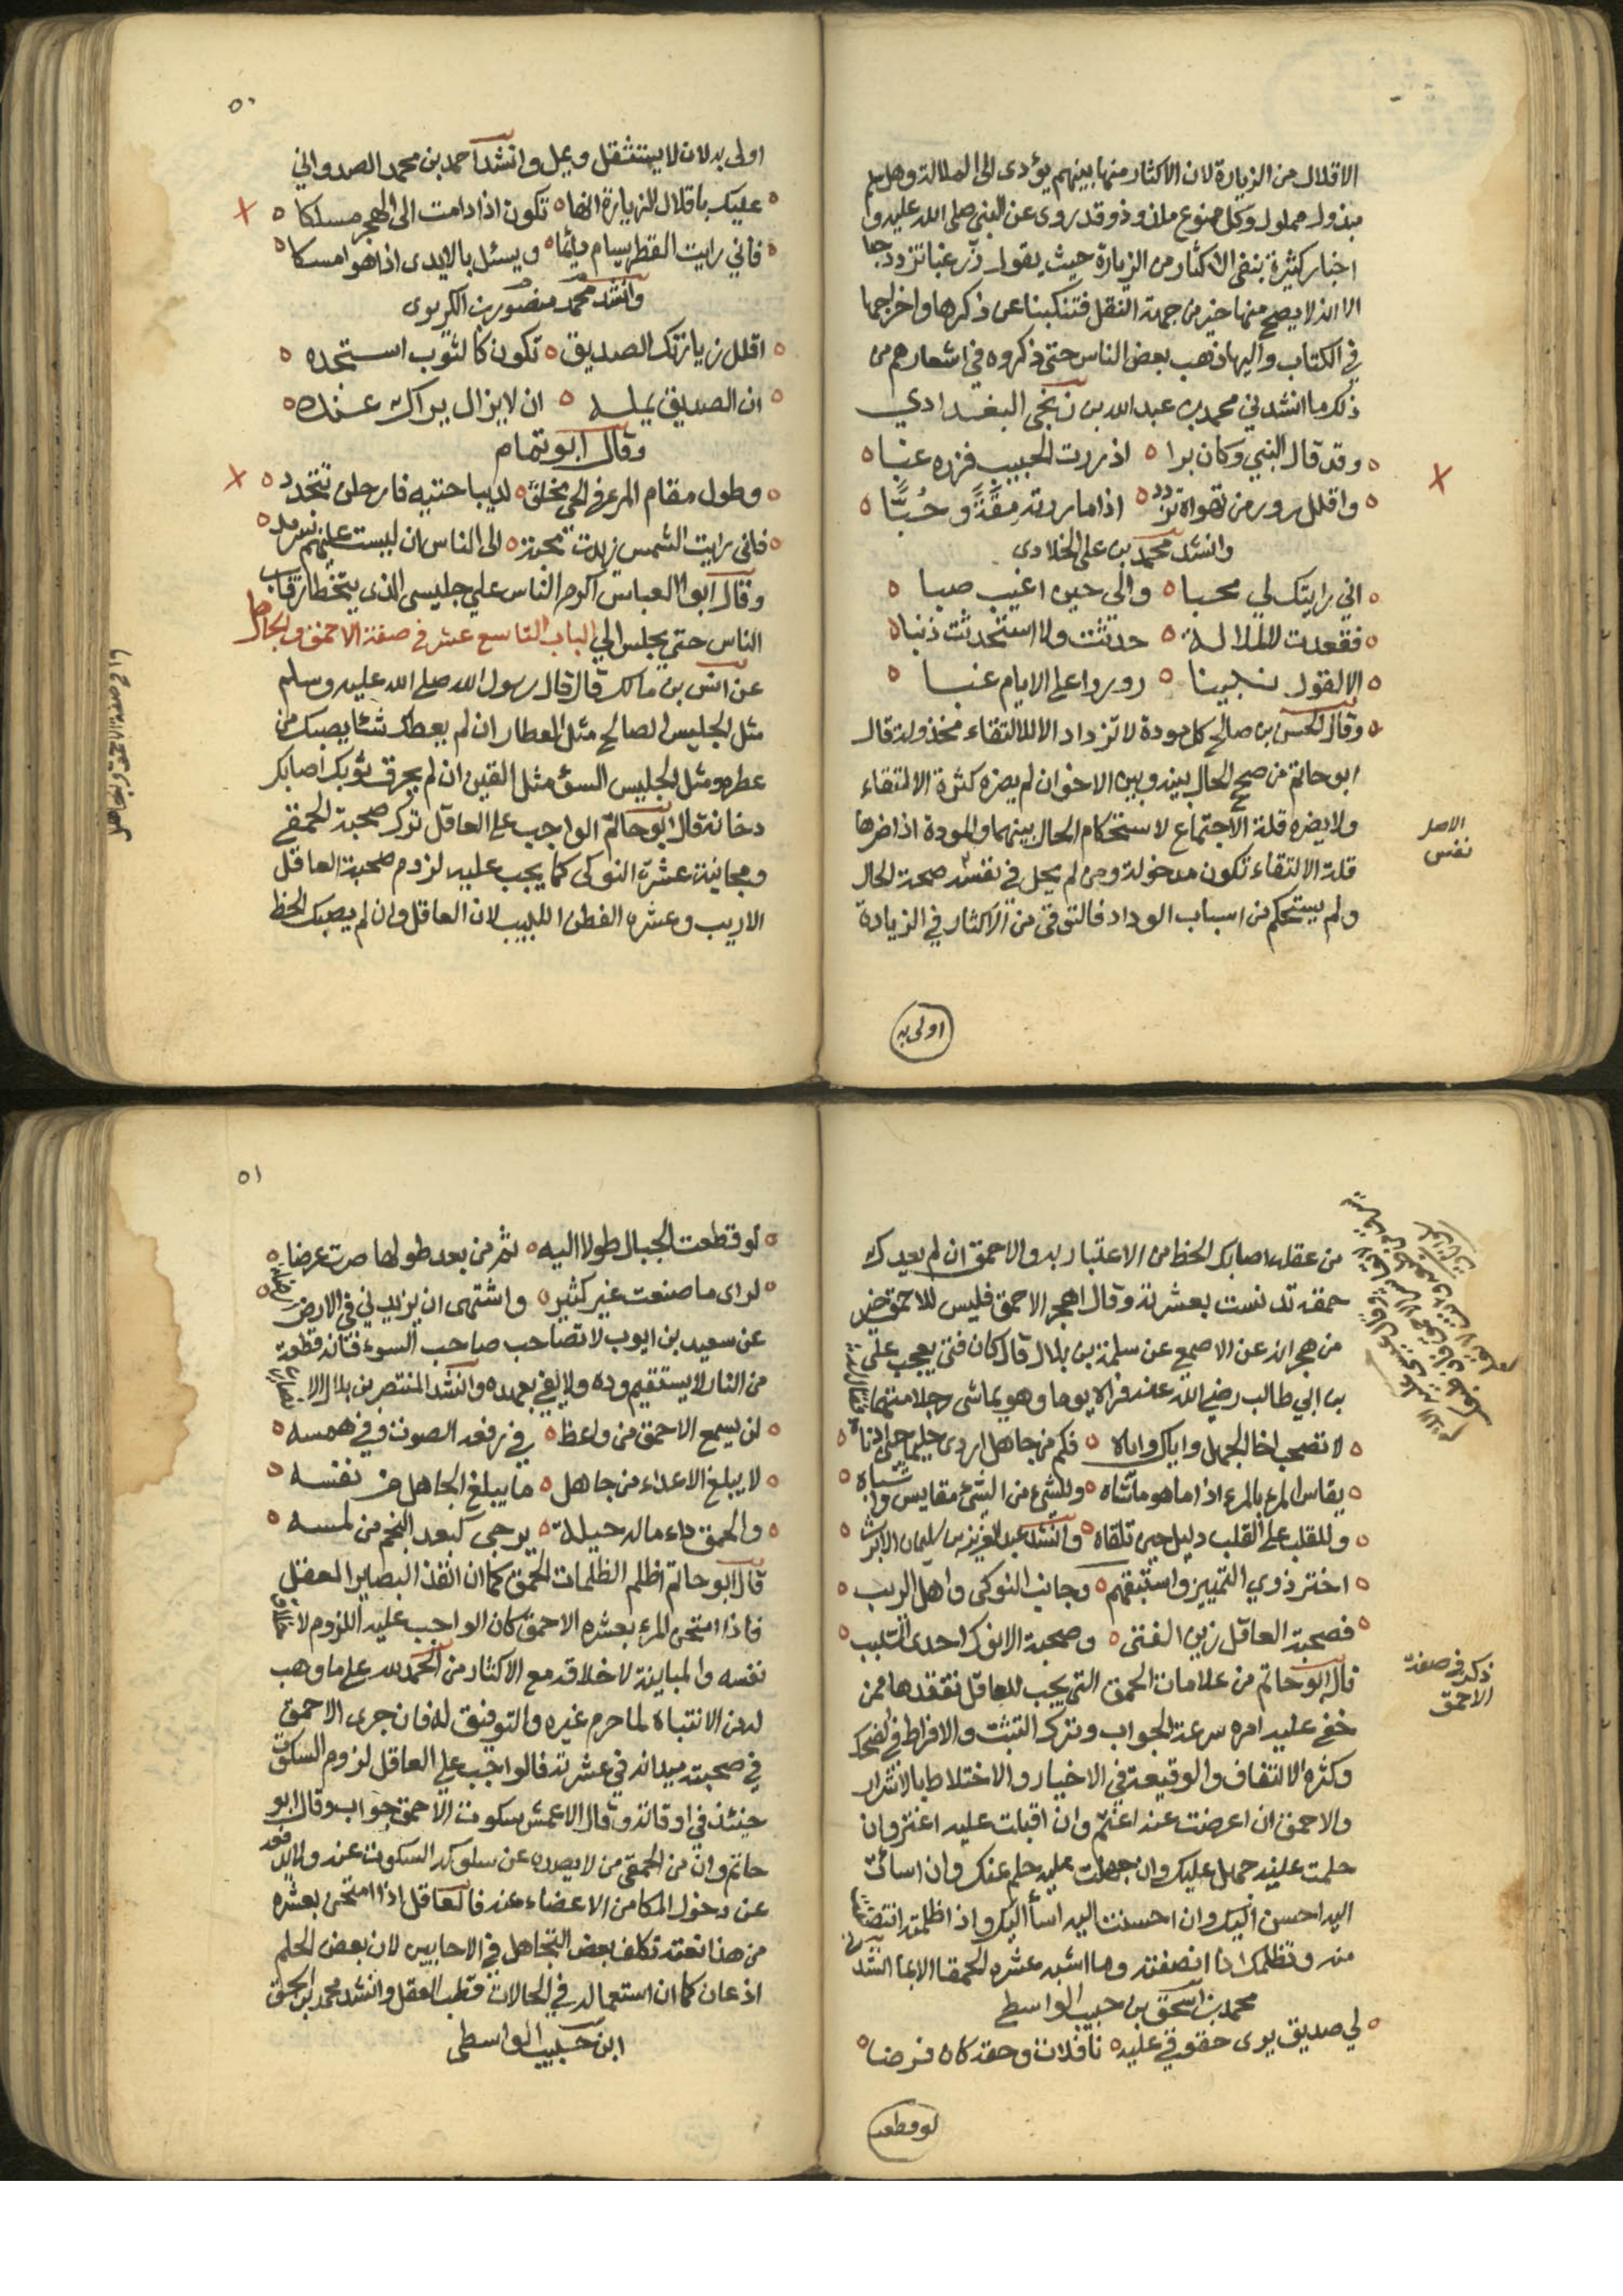 الاقلال من الزيارة لان الاكثار منها بينهم يؤدى الى الملالة وهل كل
مبذول مملول وكل ممنوع ملذوذ وقد روى عن النبي صلى الله عليه و
اخبار كثيرة بنفى الاكثار من الزيارة حيث يقول زر غبا تزدد حبا
الا انه لا يصح منها خبر من جهة النقل فتنكبنا عن ذكرها واخراجها
في الكتاب واليها ذهب بعض الناس حتى ذكروه في اشعارهم من
ذلك ما انشدني محمد بن عبد الله بن زنجي البغدادي
وقد قال النبي وكان برا ٥ اذ زرت الحبيب فزره غبا
واقلل زور من تهواه تزدد ٥ اذا ما زرته مقة وحبا
وانشد محمد بن على الخلادى
اني رايتك لي محبا ٥ والى حين اغيب صبا
فقعدت لا لملالة ٥ حدثت ولا استحدثت ذنبا
الا لقول نبينا ٥ زوروا على الايام غبا
وقال الحسن بن صالح كل مودة لا تزداد الا للالتقاء مخذولة قال
ابو حاتم من صح الحال بينه وبين الاخوان لم يضره كثرة الالتقاء
ولا يضره قلة الاجتماع لاستحكام الحال بينهما والمودة اذا اضرها
قلة الالتقاء تكون مدخولة ومن لم يحل في نفسه صحة الحال
ولم يستحكم من اسباب الوداد فالتوقى من الاكثار في الزيادة
الاصل
نفس
اولى به
٥٠
اولى به لان لا يستثقل ويمل وانشد احمد بن محمد الصدواني
عليك باقلال الزيارة انها ٥ تكون اذا دامت الى الهجر مسلكا
فاني رايت القطر يسام دائما ٥ ويسئل بالايدى اذا هو امسكا
وانشد محمد منصور بن الكريزى
اقلل زيارتك الصديق ٥ تكون كالثوب استجده
ان الصديق يمله ٥ ان لا يزال يراك عنده
وقال ابو تمام
وطول مقام المرء في الحي مخلق ٥ لديباجتيه فارحلن تتجدد
فانى رايت الشمس زيدت محبة ٥ لى الناس ان ليست عليهم بسرمد
وقال ابو العباس اكرم الناس علي جليسى الذى يتخطا رقاب
الناس حتى يجلس الي الباب التاسع عشر في صفة الاحمق والجاهل
عن انس بن مالك قال قال رسول الله صلى الله عليه وسلم
مثل الجليس الصالح مثل العطار ان لم يعطك شئا يصبك من
عطره ومثل الجليس السؤ مثل القين ان لم يحرق ثوبك اصابك
دخانه قال ابو حاتم الواجب على العاقل ترك صحبة الحمقى
ومجانبة عشرة النوكى كما يجب عليه لزوم صحبة العاقل
الاريب وعشره الفطن اللبيب لان العاقل وان لم يصبك الحظ
١٩ في صفة الاحمق والجاهل
من عقله اصابك الحظ من الاعتبار به والاحمق ان لم يعدك
حمقه تدنست بعشرته وقال اهجر الاحمق فليس للاحمق خير
من هجرانه عن الاصمع عن سلمة بن بلال قال كان فتى يعجب على
بن ابي طالب رضي الله عنه فراه يوما وهو يماشى رجلا متهما
لا تصحب اخا الجهل واياك واياه ٥ فكم من جاهل اردى حليما حين اخاه
يقاس المرء بالمرء اذا ما هو ماشاه ٥ وللشئ من الشئ مقاييس واشباه
وللقلب على القلب دليل حين تلقاه ٥ وانشد عبد العزيز بن سليمان الابرش
اختر ذوي التمييز واستبقهم ٥ وجانب النوكى واهل الريب
فصحبة العاقل زين الفتى ٥ وصحبة الانوك احدى السبب
قال ابو حاتم من علامات الحمق التى يجب للعاقل تفقدها ممن
خفي عليه امره سرعة الجواب وترك التثبت والافراط في الضحك
وكثرة الالتفات والوقيعة في الاخيار والاختلاط بالاشرار
والاحمق ان اعرضت عنه اغتم وان اقبلت عليه اغتر وان
حلمت عليه جهل عليك وان جهلت عليه حلم عنك وان اسائت
اليه احسن اليك وان احسنت اليه اسأ اليك واذا ظلمته انتصفت
منه وتظلمك اذا انصفته وما اشبه عشره الحمقا الا بما انشدني
محمد بن اسحق بن حبيب الواسطى
لي صديق يرى حقوقي عليه ٥ نافلات وحقه كان فرضا
ذكر في صفة
الاحمق
لو قطعت
٥١
لو قطعت الجبال طولا اليه ٥ ثم من بعد طولها صرت عرضا
لراى ما صنعت غير كثير ٥ واشتهى ان يزيد لي في الارض
عن سعيد بن ايوب لا تصاحب صاحب السوء فانه قطعة
من النار لا يستقيم وده ولا يفي بعهده وانشد المنتصر بن بلال الا
لن يسمع الاحمق من واعظ ٥ في رفعه الصوت وفي همسه
لا يبلغ الاعداء من جاهل ٥ ما يبلغ الجاهل من نفسه
والحمق داء ماله حيلة ٥ يرجى كبعد النجم من لمسه
قال ابو حاتم اظلم الظلمات الحمق كما ان انفذ البصاير العقل
فاذا امتحن المرء بعشره الاحمق كان الواجب عليه اللزوم لاخلاق
نفسه والمباينة لاخلاقه مع الاكثار من الحمد لله على ما وهب
له من الانتباه لما حرم غيره والتوفيق له فان جرى الاحمق
في صحبته ميدانه في عشرته فالواجب على العاقل لزوم السكوت
حينئذ في اوقاته وقال الاعمش سكوت الاحمق جواب وقال ابو
حاتم وان من الحمقى من لا يصده عن سلوكه السكوت عنه ولا يدفعه
عن دخول المكامن الاعضاء عنه فالعاقل اذا امتحن بعشره
من هذا نعته تكلف بعض التجاهل في الاحايين لان بعض الحلم
اذعان كما ان استعماله في الحالات قطب العقل وانشد محمد بن اسحق
ابن حبيب الواسطى